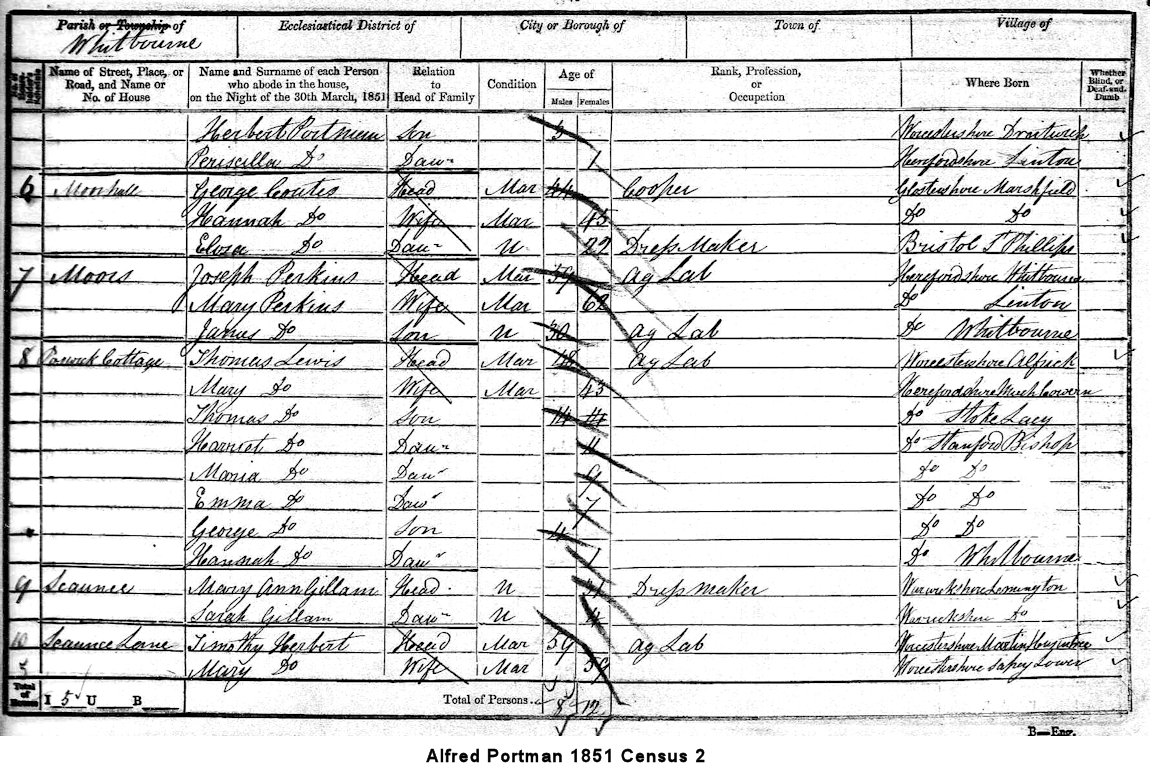 Parish or Township of Ecclesiastical District of City or Borough of Town of Village of
Whitbourne
Name of Street, Place, or Road, and Name or No. of House Name and Surname of each Person who abode in the house, on the Night of the 30th March, 1851 Relation to Head of Family Condition Age of Males Females Rank, Profession, or Occupation Where Born Whether Blind, or Deaf-and-Dumb
Herbert Portman Son 3 Worcestershire Droitwich
Periscilla Do Daur 1 Herefordshire Linton
6 George Coutes Head Mar 44 Cooper Marshfield
Hannah Do Wife Mar 45 Do Do
Do Daur U 22 Dress Maker Bristol St Phillips
7 Moors Joseph Perkins Head Mar 59 Ag Lab Herefordshire Whitbourne
Mary Perkins Wife Mar 62 Do Linton
James Do Son U 30 Ag Lab Do Whitbourne
8 Cottage Thomas Lewis Head Mar 48 Ag Lab Worcestershire Alfrick
Mary Do Wife Mar 43 Herefordshire Much Cowern
Thomas Do Son 14 14 Do Stoke Lacy
Harriet Do Daur 11 Do Stanford Bishop
Maria Do Daur 9 Do Do
Emma Do Daur 7 Do Do
George Do Son 4 Do Do
Hannah Do Daur 1 Do Whitbourne
9 Mary Ann Gillam Head U Dressmaker Warwickshire Lemington
Sarah Gillam Daur U 4 Warwickshire Do
10 Timothy Herbert Head Mar 59 Ag Lab Worcestershire Martin
Mary Do Wife Mar 59 Worcestershire Sapey Lower
Total of Houses I 5 U B Total of Persons 8 12
B—Eng.
Alfred Portman 1851 Census 2